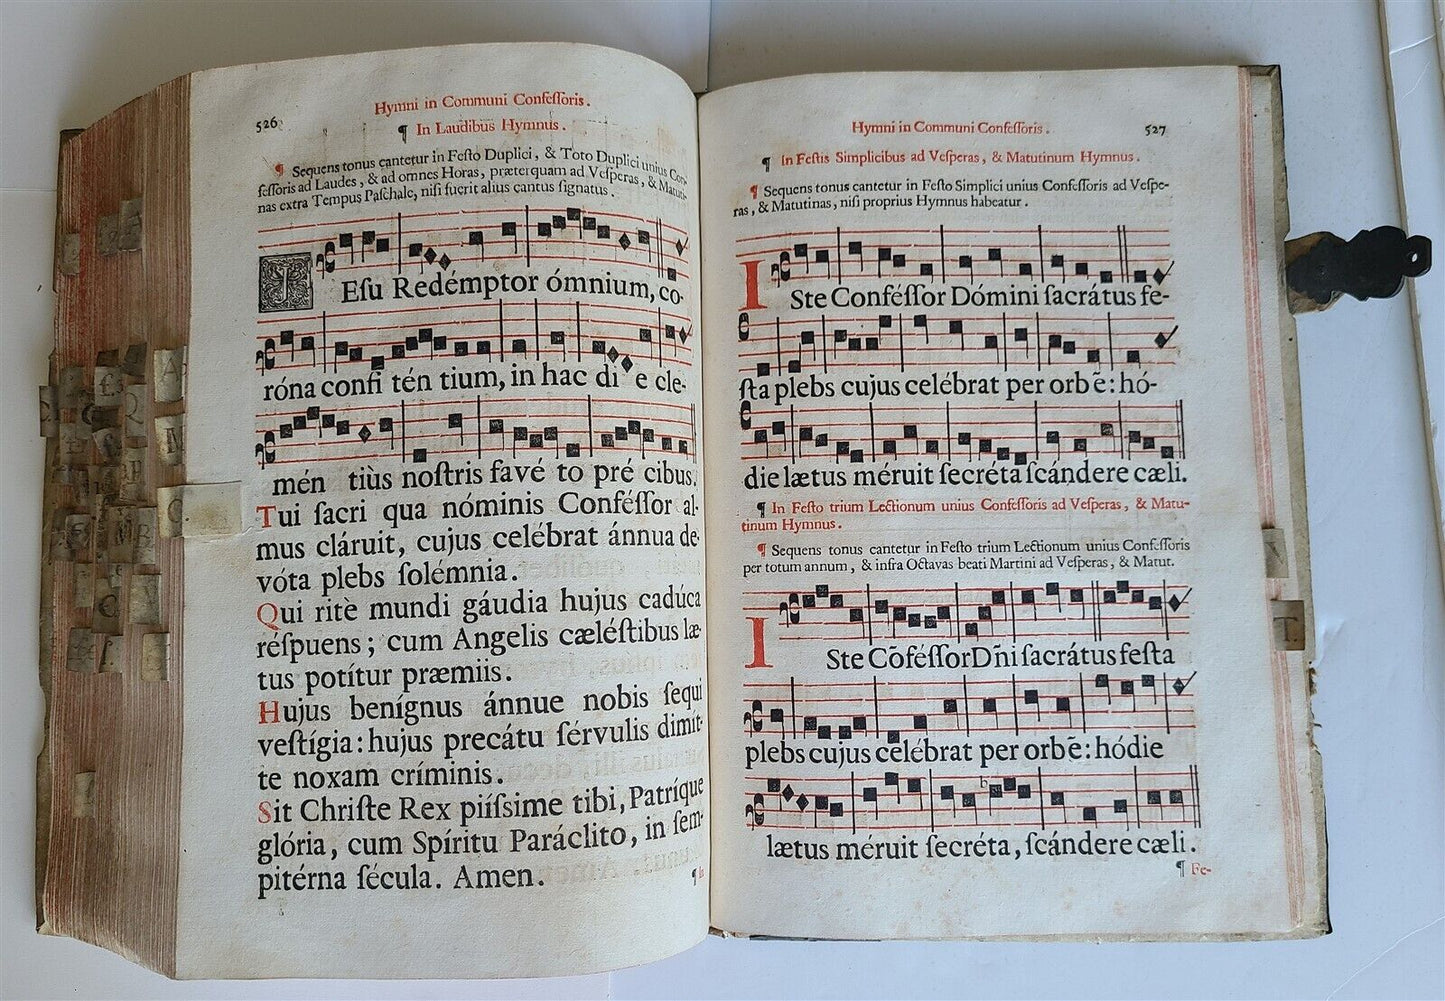 526
Hymni in Communi Confeſſoris.
¶ In Laudibus Hymnus.
¶ Sequens tonus cantetur in Feſto Duplici, & Toto Duplici unius Con-
feſſoris ad Laudes, & ad omnes Horas, præterquam ad Veſperas, & Matuti-
nas extra Tempus Paſchale, niſi fuerit alius cantus ſignatus.
JEſu Redémptor ómnium, co-
róna confi tén tium, in hac di e cle-
mén tiùs noſtris favé to pré cibus.
Tui ſacri qua nóminis Conféſſor al-
mus cláruit, cujus celébrat ánnua de-
vóta plebs ſolémnia.
Qui ritè mundi gáudia hujus cadúca
réſpuens; cum Angelis cæléſtibus læ-
tus potítur præmiis.
Hujus benígnus ánnue nobis ſequi
veſtígia: hujus precátu férvulis dimit-
te noxam críminis.
Sit Chriſte Rex piíſsime tibi, Patríque
glória, cum Spíritu Paráclito, in ſem-
pitérna ſécula. Amen.
¶ In
Hymni in Communi Confeſſoris.
527
¶ In Feſtis Simplicibus ad Veſperas, & Matutinum Hymnus.
¶ Sequens tonus cantetur in Feſto Simplici unius Confeſſoris ad Veſpe-
ras, & Matutinas, niſi proprius Hymnus habeatur.
ISte Conféſſor Dómini ſacrátus fe-
ſta plebs cujus celébrat per orbē: hó-
die lætus méruit ſecréta ſcándere cæli.
¶ In Feſto trium Lectionum unius Confeſſoris ad Veſperas, & Matu-
tinum Hymnus.
¶ Sequens tonus cantetur in Feſto trium Lectionum unius Confeſſoris
per totum annum, & infra Octavas beati Martini ad Veſperas, & Matut.
ISte Cōféſſor Dñi ſacrátus feſta
plebs cujus celébrat per orbē: hódie
b
lætus méruit ſecréta, ſcándere cæli.
¶ Fe-